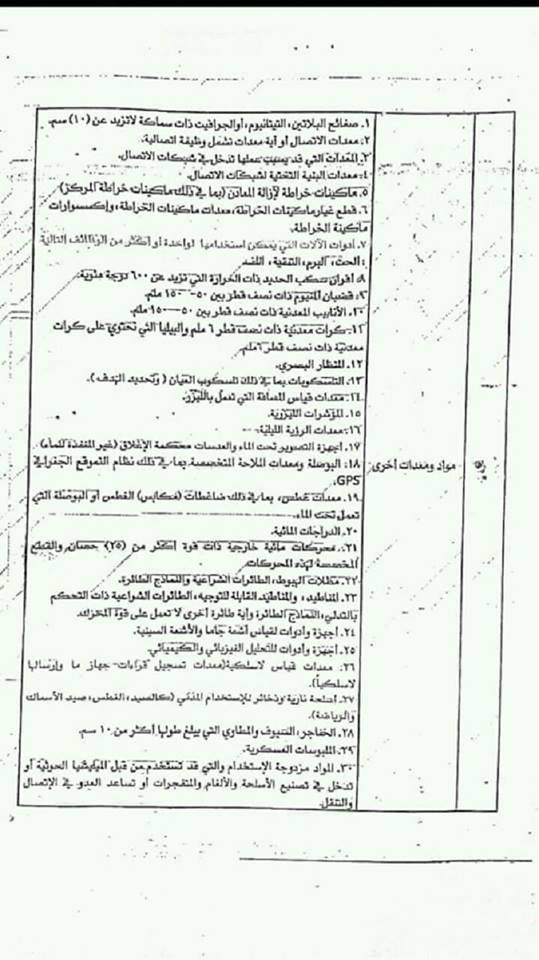 ١. صفائح البلاتين، التيتانيوم، أوالجرافيت ذات سماكة لاتزيد عن (١٠) سم.
٢. معدات الاتصال أو أية معدات تشمل وظيفة اتصالية.
٣. المعدات التي قد يسبب عملها تدخل في شبكات الاتصال.
٤. معدات البنية التحتية لشبكات الاتصال.
٥. ماكينات خراطة لإزالة المعادن (بما في ذلك ماكينات خراطة المركز)
٦. قطع غيار ماكينات الخراطة، معدات ماكينات الخراطة، وإكسسوارات
ماكينة الخراطة.
٧. أدوات الآلات التي يمكن استخدامها لواحدة أو أكثر من الوظائف التالية
: الحت، البرم، التنقية،
٨. أفران سكب الحديد ذات الحرارة التي تزيد عن ٦٠٠ درجة مئوية.
٩. قضبان المنيوم ذات نصف قطر بين ٥٠-١٥٠ ملم.
١٠. الأنابيب المعدنية ذات نصف قطر بين ٥٠-١٥٠ ملم.
١١. كرات معدنية ذات نصف قطر ٦ ملم والبيليا التي تحتوي على كرات
معدنية ذات نصف قطر ٦ملم.
١٢. المنظار البصري.
١٣. التلسكوبات بما في ذلك تلسكوب العيان (وتحديد الهدف).
١٤. معدات قياس المسافة التي تعمل بالليزر.
١٥. المؤشرات الليزرية.
١٦. معدات الرؤية الليلية.
١٧. أجهزة التصوير تحت الماء والعدسات محكمة الإغلاق (غير المنفذة للماء)
مواد ومعدات أخرى
١٨. البوصلة ومعدات الملاحة المتخصصة بما في ذلك نظام التموقع الجغرافي
GPS.
١٩. معدات غطس، بما في ذلك ضاغطات (مكابس) الغطس أو البوصلة التي
تعمل تحت الماء.
٢٠. الدراجات المائية.
٢١. محركات مائية خارجية ذات قوة أكثر من (٢٥) حصان والقطع
المخصصة لهذه المحركات
٢٢. مظلات الهبوط، الطائرات الشراعية والنماذج الطائرة.
٢٣. المناطيد، والمناطيد القابلة للتوجيه، الطائرات الشراعية ذات التحكم
بالتدلي، النماذج الطائرة وأية طائرة أخرى لا تعمل على قوة المحرك.
٢٤. أجهزة وأدوات لقياس أشعة جاما والأشعة السينية.
٢٥. أجهزة وأدوات للتحليل الفيزيائي والكيميائي.
٢٦. معدات قياس لاسلكية(معدات تسجيل قراءات-جهاز ما وإرسالها
لاسلكيا).
٢٧. أسلحة نارية وذخائر للإستخدام المدني (كالصيد، الغطس، صيد الأسماك
والرياضة).
٢٨. الخناجر، السيوف والمطاوي التي يبلغ طولها أكثر من ١٠ سم.
٢٩. الملبوسات العسكرية.
٣٠. المواد مزدوجة الإستخدام والتي قد تستخدم من قبل الميليشيا الحوثية أو
تدخل في تصنيع الأسلحة والألغام والمتفجرات أو تساعد العدو في الإتصال
والتنقل.